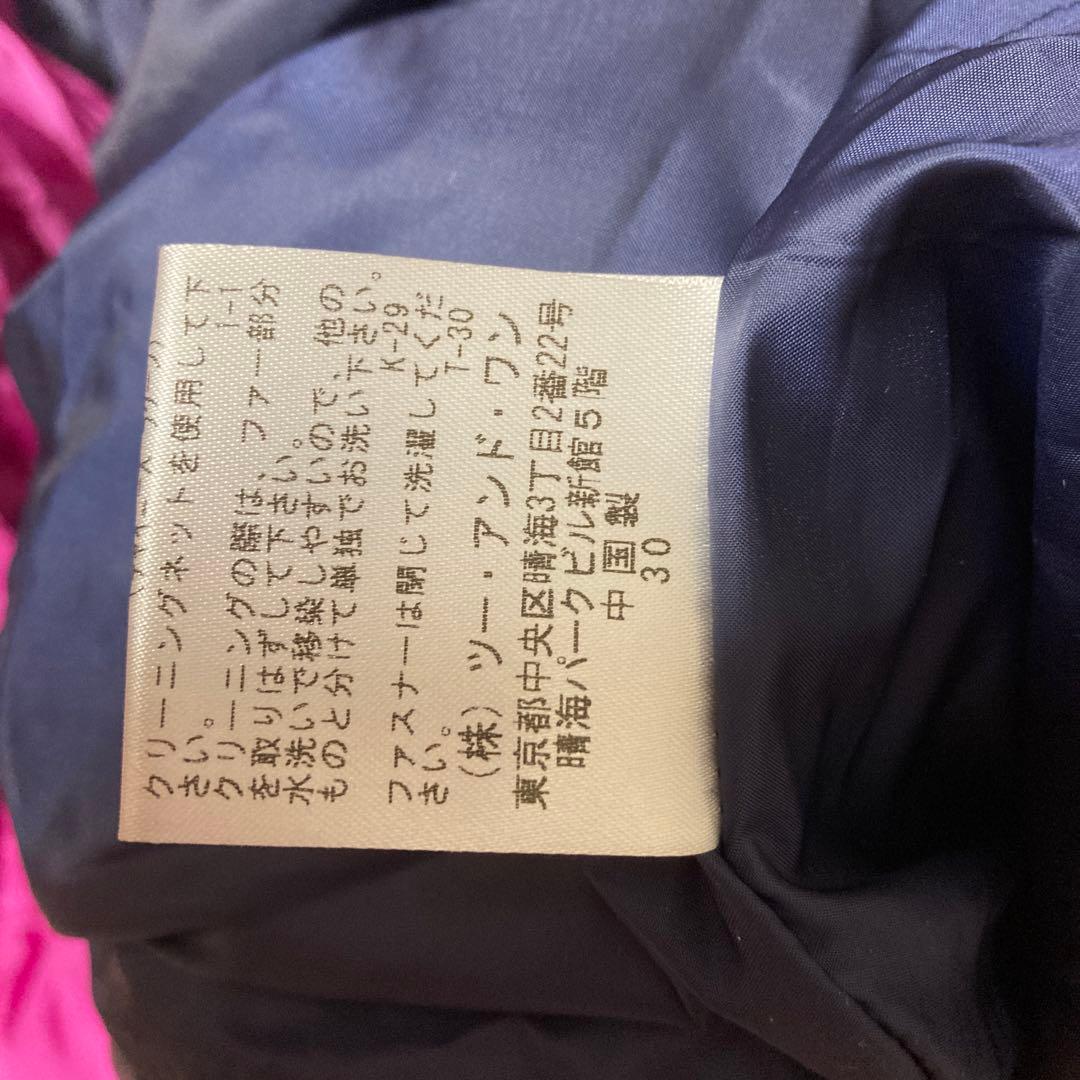 クリーニングネットを使用して下
さい。 I-1
クリーニングの際は、ファー部分
を取りはずして下さい。
水洗いで移染しやすいので、他の
ものと分けて単独でお洗い下さい。
K-29
ファスナーは閉じて洗濯してくだ
さい。 T-30
(株) ツー・アンド・ワン
東京都中央区晴海3丁目2番22号
晴海パークビル新館5階
中国製
30